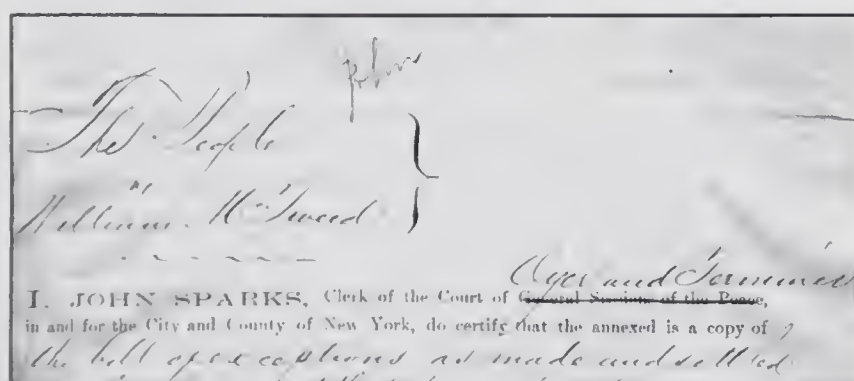 The People
vs
William M Tweed
Oyer and Terminer
I, JOHN SPARKS, Clerk of the Court of General Sessions of the Peace,
in and for the City and County of New York, do certify that the annexed is a copy of
the bill of exceptions as made and settled